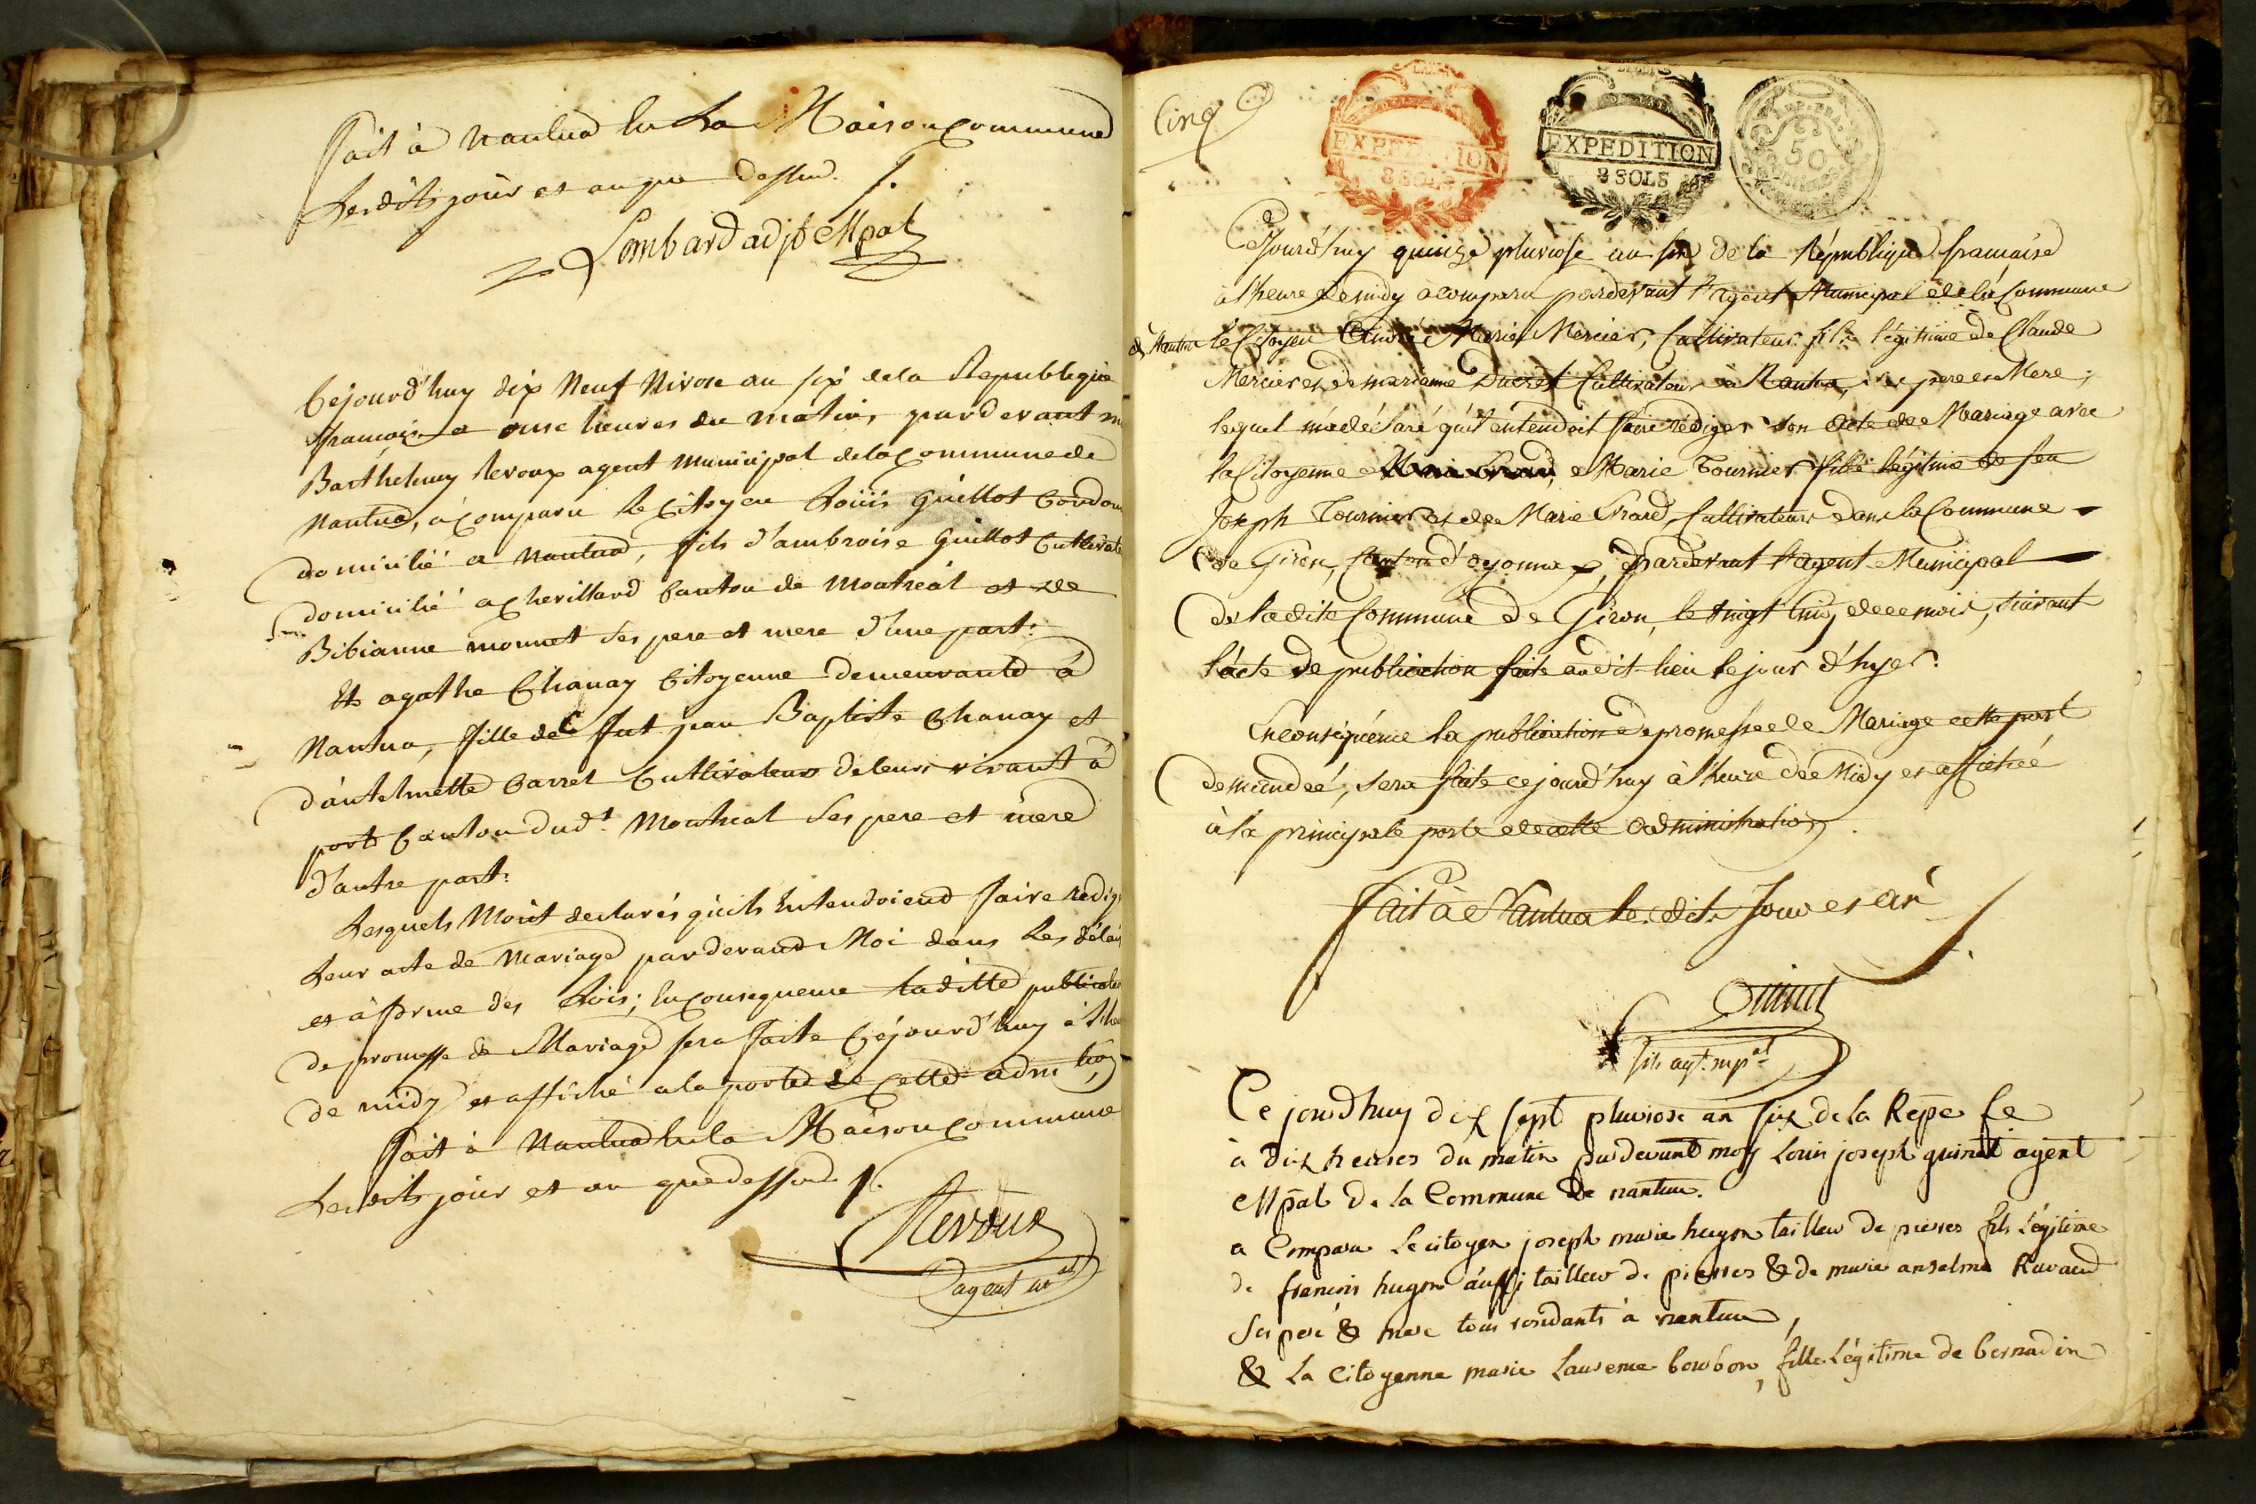 fait à Nantua En La Maison Commune
Lesdits jour et an que dessus.
Lombard adjt Mpal
Cejourd'huy dix Neuf Nivose an six de la Republique
française a onse heures du matin, pardevant
Barthelemy Revoux agent municipal de la Commune de
Nantua, a Comparu Le Citoyen Louis Guillot Cordon
domicilié a Nantua, fils d'ambroise Guillot Cultivat
domicilié a Chevillard Canton de Montreal et de
Bibianne monnet Ses pere et mere d'une part:
Et agathe Chanay Citoyenne demeurante à
Nantua, fille de fut jean Baptiste Chanay et
d'antelmette Carrel Cultivateurs de leurs vivant à
port Canton dudt Montreal Ses pere et mere
d'autre part:
Lesquels M'ont declarés qu'ils Entendoient faire redig
Leur acte de Mariage pardevant Moi dans Les délai
et à forme des Lois; En Consequence laditte publicat
de promesse de Mariage sera faite Cejourd'huy à l'he
de midy et affiché a la porte de Cette admtion
fait à Nantua En la Maison Commune
Lesdits jour et an que dessus.
Revoux
agent mal
Cinq
EXPEDITION
8 SOLS
EXPEDITION
8 SOLS
50
CENTIMES
Cejourd'huy quinze pluviose an six de la République française
à l'heure de midy a comparu pardevant l'agent Municipal de la Commune
de Nantua le Citoyen André Marie Mercier, Cultivateur fils légitime de Claude
Mercier et de marianne Ducret Cultivateurs à Nantua, ses pere et Mere;
lequel m'a déclaré qu'il entendoit faire rédiger son Acte de Mariage avec
la Citoyenne Marie Tournier fille légitime de feu
Joseph Tournier et de Marie Grard, Cultivateurs dans la Commune
de Giron, Canton d'oyonnax, pardevant l'agent Municipal
de ladite Commune de Giron, le vingt cinq de ce mois, suivant
l'acte de publication faite audit lieu le jour d'hyer.
En conséquence la publication de promesse de Mariage cette part
demandée, sera faite cejourd'huy à l'heure de Midy et affichée
à la principale porte de cette Administration.
Fait à Nantua les dits Jour et an
Guinet
fils agt. mpal
Ce jourdhuy dix sept pluviose an six de la Repe fe
à dix heures du matin pardevant moy Louis joseph guinet agent
Mpal de la Commune de nantua.
a Comparu Le citoyen joseph marie hugon tailleur de pierres fils légitime
de francois hugon aussi tailleur de pierres & de marie anselme Ravaud
Ses pere & mere tous residants à nantua,
& La Citoyenne marie Laurence bourbon, fille Légitime de bernadin